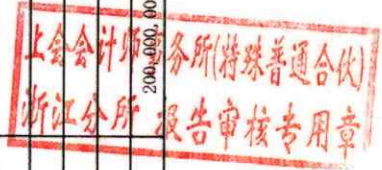 上会会计师事务所(特殊普通合伙)
浙江分所 报告审核专用章
200,000,00